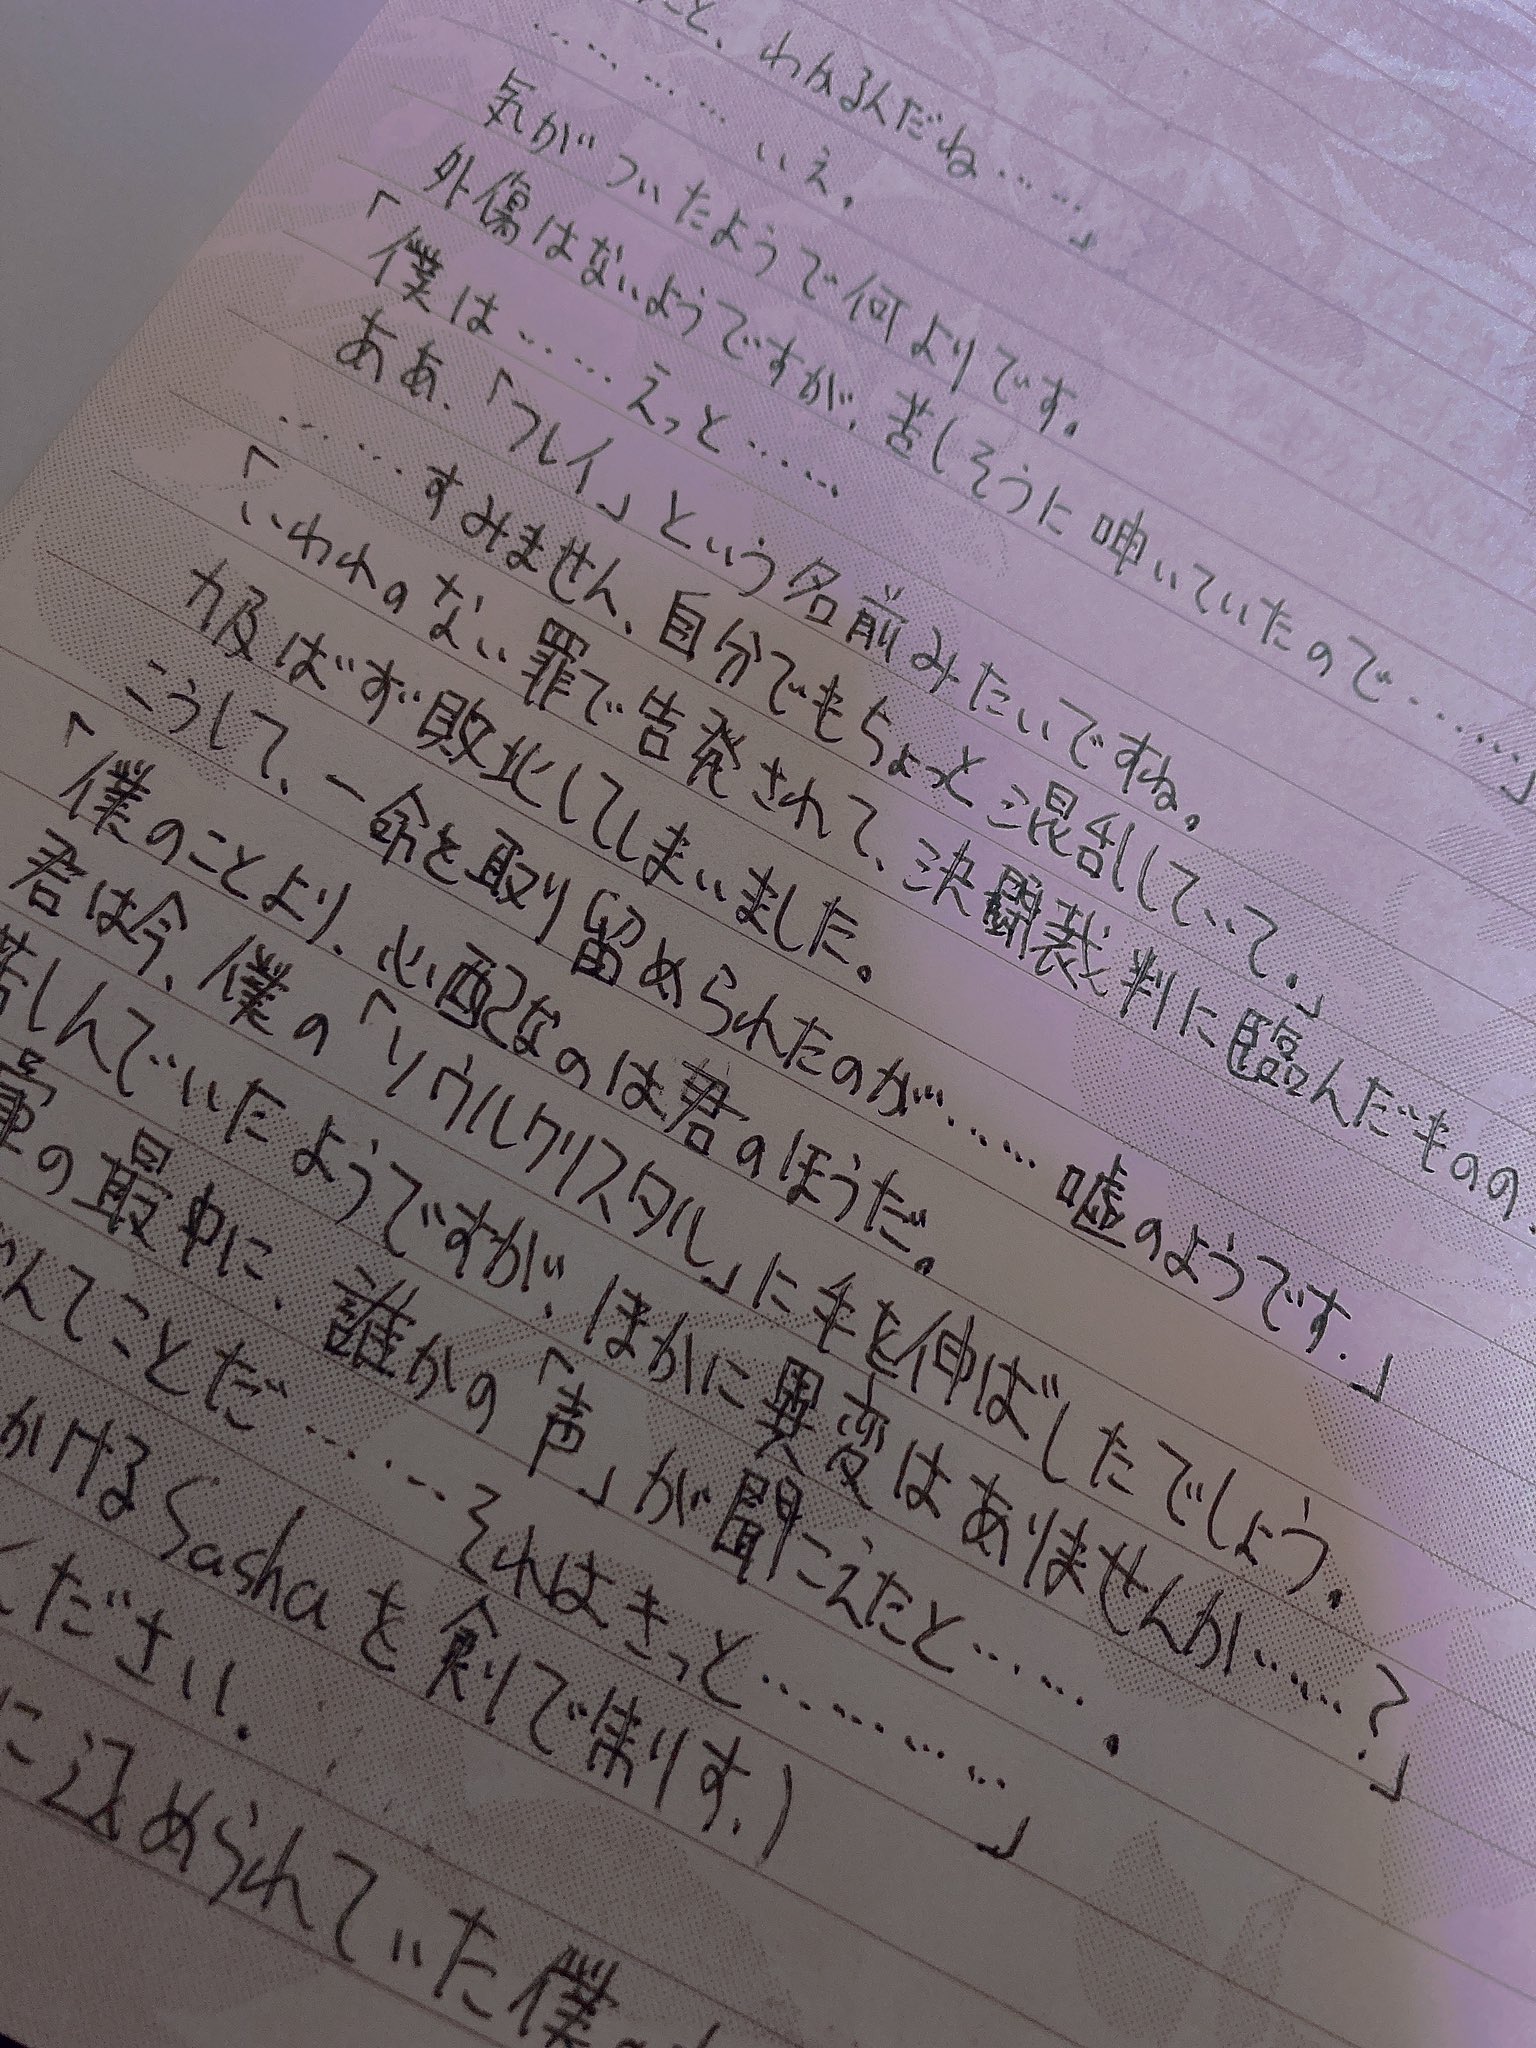 こと、わかるんだね……」
………… いえ。
気がついたようで何よりです。
外傷はないようですが、苦しそうに呻いていたので……」
「僕は……えっと……
ああ、「フレイ」という名前みたいですね。
……すみません、自分でもちょっと混乱していて。」
「いわれのない罪で告発されて、決闘裁判に臨んだものの、
力及ばず敗北してしまいました。
こうして、一命を取り留められたのが……嘘のようです。」
「僕のことより、心配なのは君のほうだ。
君は今、僕の「ソウルクリスタル」に手を伸ばしたでしょう。
苦しんでいたようですが、ほかに異変はありませんか……?」
の最中に、誰かの「声」が聞こえたと……。
んてことだ……それはきっと…………」
かけるSashaを剣で制す。)
ください。
に込められていた僕の